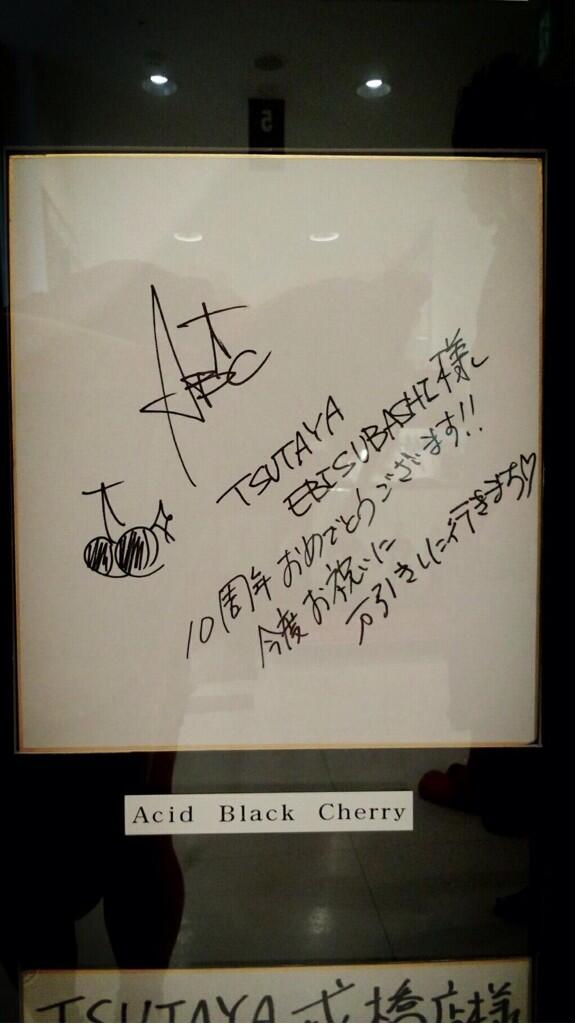 ABC
TSUTAYA
EBISUBASHI様
10周年おめでとうございます!!
今度お祝いに
万引きしに行きまち♡
Acid Black Cherry
TSUTAYA戎橋店様